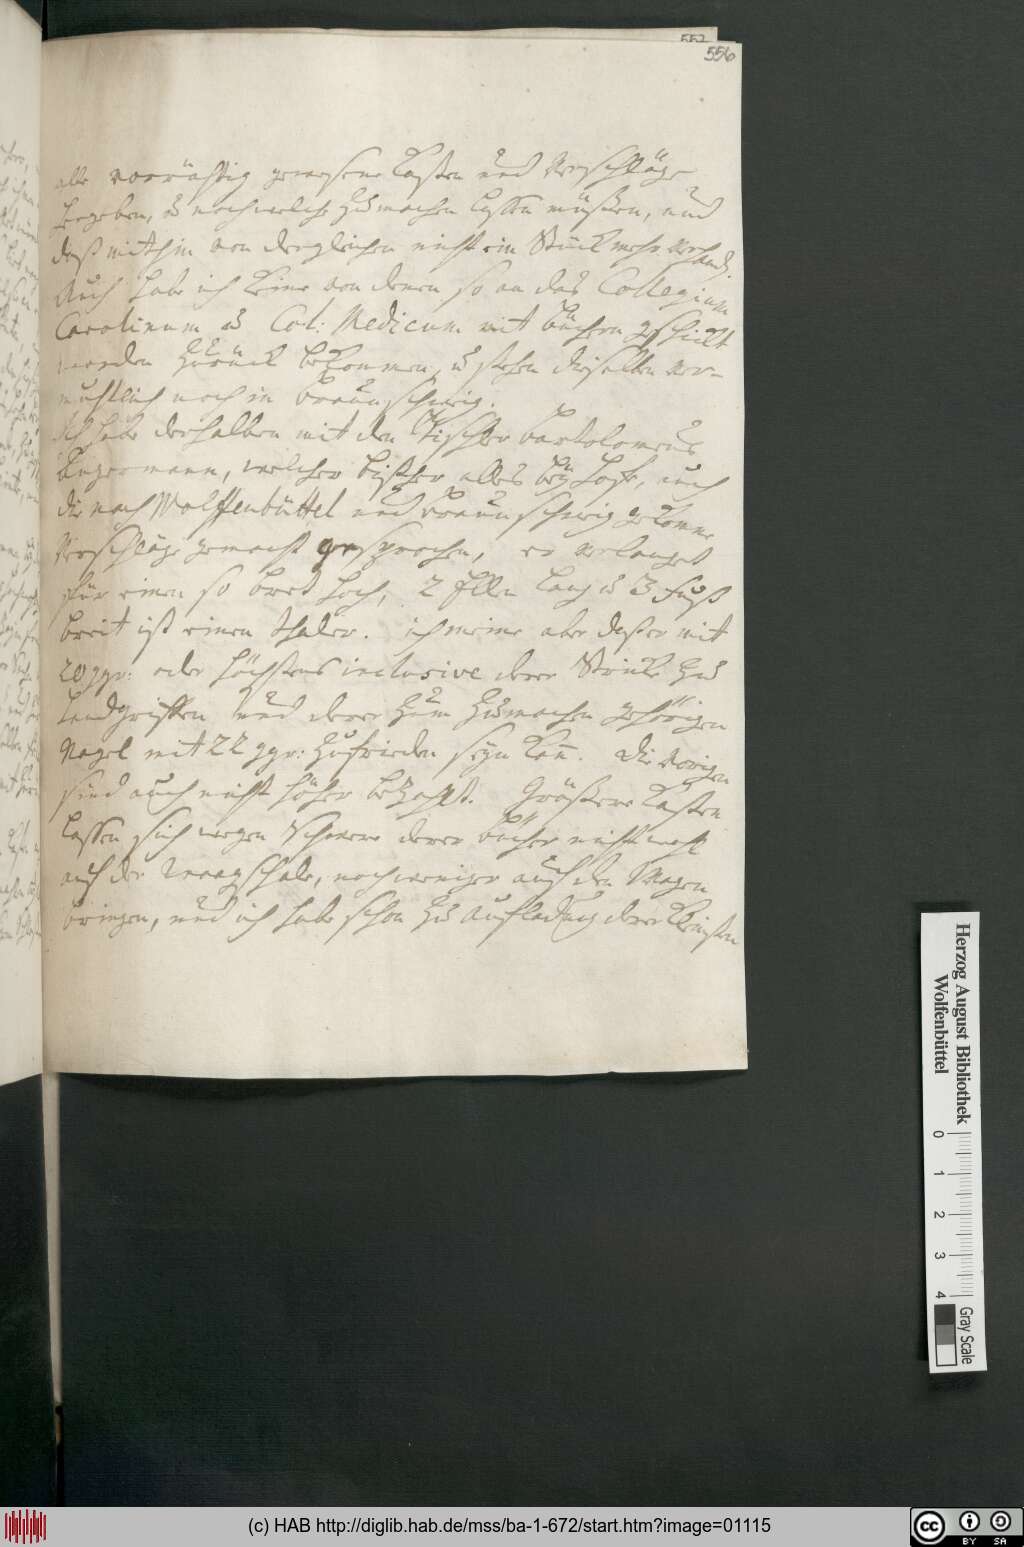 557
556
alle vorräthig gewesene Kasten und Verschläge
hergeben, u noch welche zu machen lassen müßen, und
daß mithin von dergleichen nicht ein Stück mehr vorhand.
Auch habe ich keine von denen so an das Collegium
Carolinum u Col: Medicum mit büchern geschickt
worden zurück bekommen, u stehen dieselben ver-
muthlich noch in braunschweig.
Ich habe derhalben mit den Tischler bartolomeus
Angermann, welcher bißher alles bey Hofe, auch
die nach Wolffenbüttel und braunschweig gekomme
Verschläge gemacht gesprochen, er verlanget
für einen so bret hoch, 2 Ellen lang u 3 fuß
breit ist einen thaler. ich meine aber daß er mit
20 ggr: oder höchstens inclusive derer Stricke zu
Handgriffen und derer zum zumachen gehörigen
Nagel mit 22 ggr: zufrieden seyn kan. die vorigen
sind auch nicht höher bezahlt. Größere Kasten
lassen sich wegen schwere derer bücher nicht wohl
auf der waagschale, noch weniger auf den Wagen
bringen, und ich habe schon zu aufladung derer kleinsten
Herzog August Bibliothek
Wolfenbüttel
0 1 2 3 4
Gray Scale
(c) HAB http://diglib.hab.de/mss/ba-1-672/start.htm?image=01115
cc BY SA